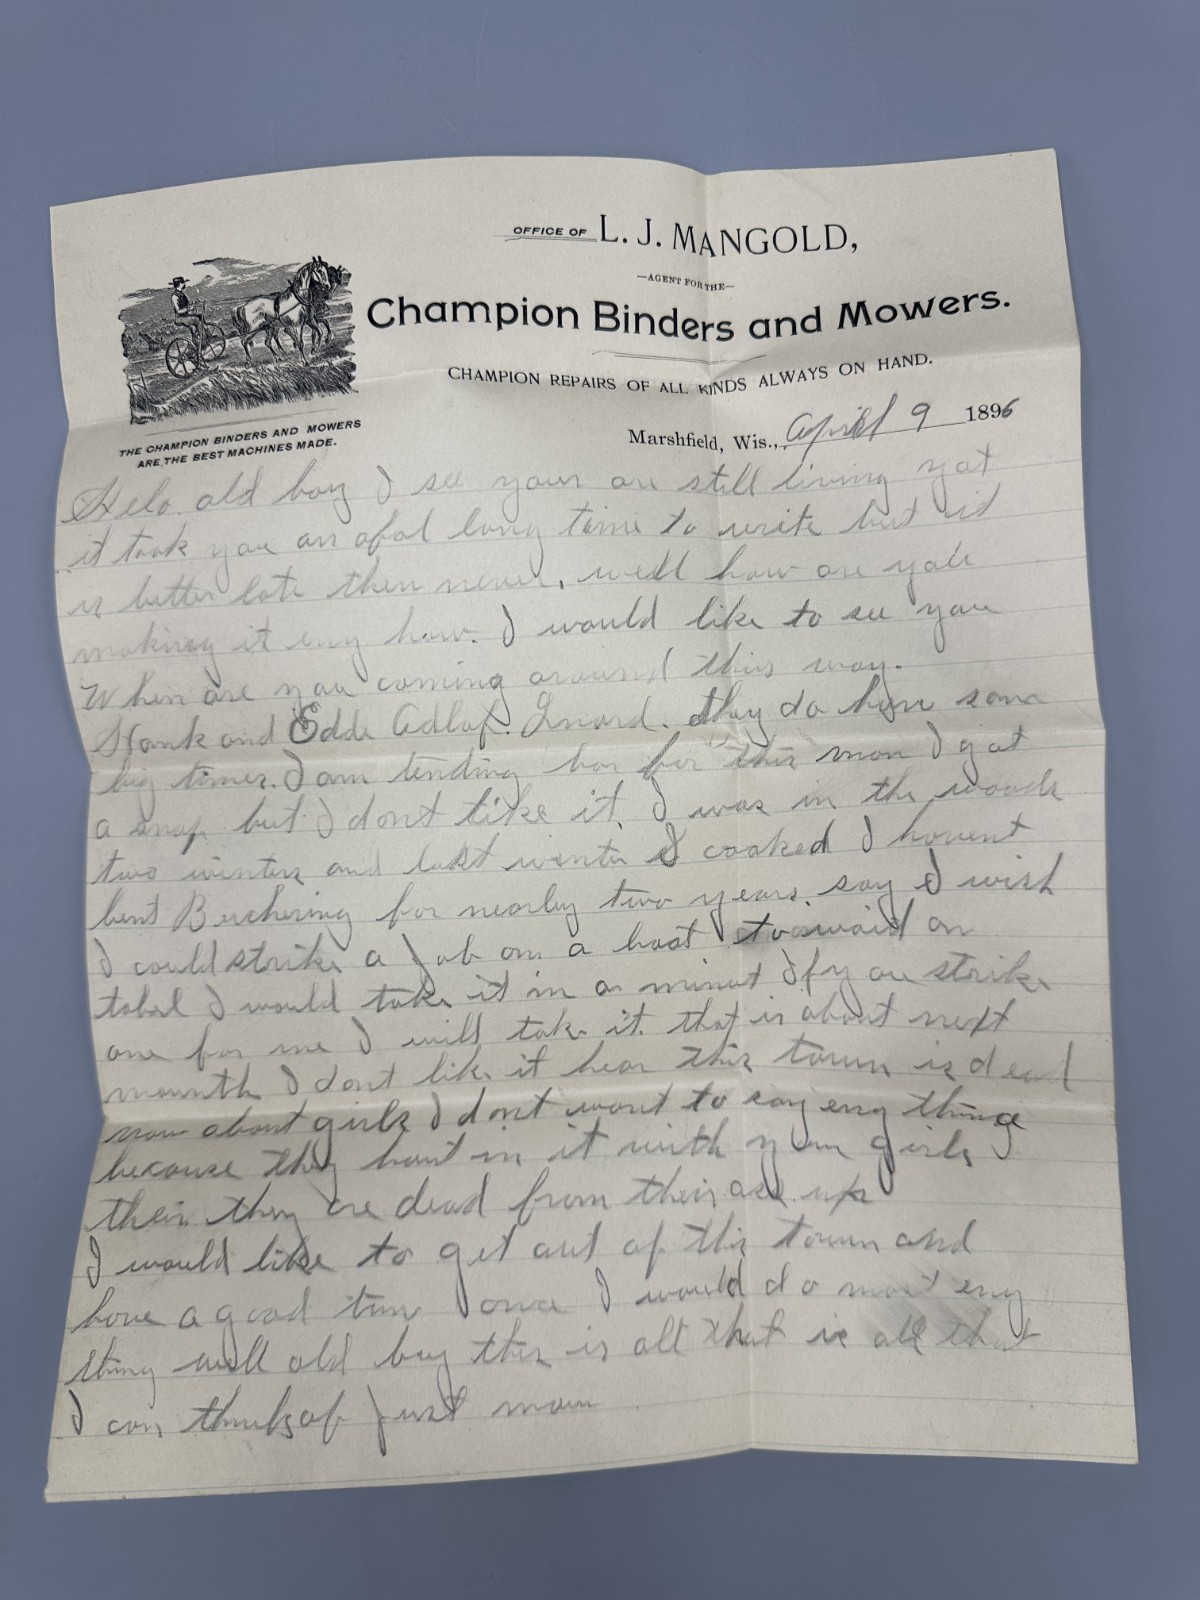 OFFICE OF L. J. MANGOLD,
—AGENT FOR THE—
Champion Binders and Mowers.
CHAMPION REPAIRS OF ALL KINDS ALWAYS ON HAND.
THE CHAMPION BINDERS AND MOWERS
ARE THE BEST MACHINES MADE.
Marshfield, Wis., April 9 1896
Helo old boy I see your are still living yat
it took you an afal long time to write but it
is better late then never. well how are you
making it eny how. I would like to see you
When are you coming around this way.
Hank and Edde Adlof. they do have som
big times. I am tending bar for this man I got
a snap but I dont like it. I was in the woods
two winters and last winter I cooked I havent
bent Buchering for nearly two years. say I wish
I could strike a Job on a boat to waid on
tabel I would take it in a minut If you strike
one for me I will take it. that is about next
mounth I dont like it hear this town is dead
now about girls I dont want to say eny thing
because they hant in it with your girls
their they are dead from their ass up
I would like to get out of this town and
have a good time once I would do most eny
thing well old boy this is all that is all that
I can think of Just now